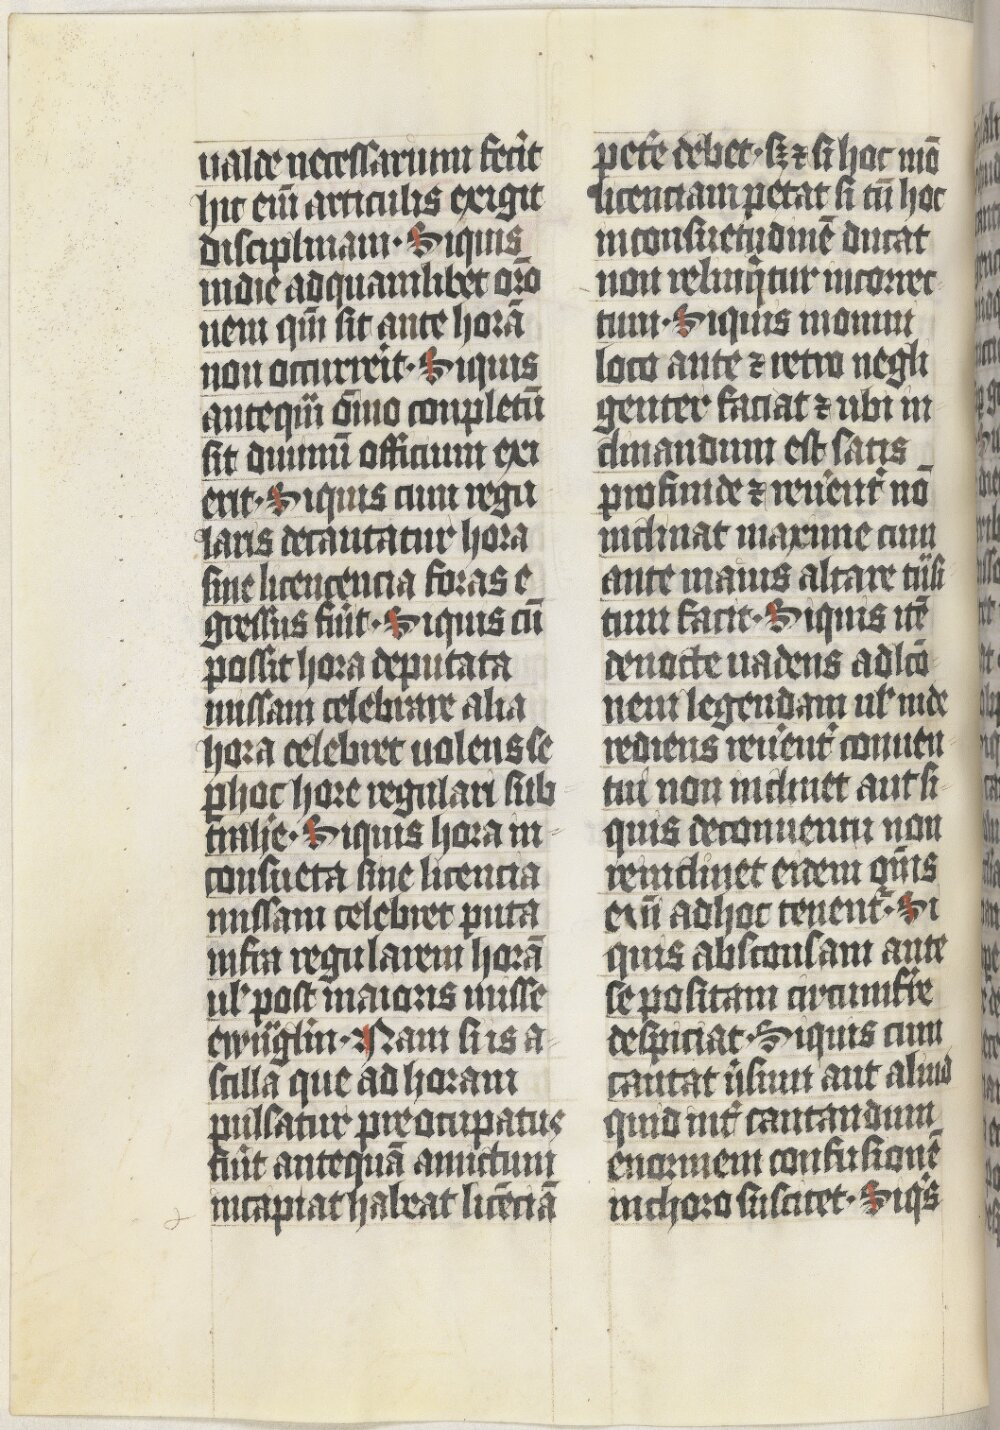 ualde necessarium fecit
hic eni᷑ articulis exigit
disciplinam· Siquis
indie adquamlibet or̅o
nem qm̅ sit ante horā
non occurrerit· Siquis
anteqm̅ om̅io conpletū
sit diuinū officium exi
erit· Siquis cum regu
laris decantatur hora
sine licencencia foras e
gressus fuit· Siquis cū
possit hora deputata
missam celebrare alia
hora celebret uolens se
phoc hore regulari sub
trahe· Siquis hora in-
consueta sine licencia
missam celebret puta
infra regularem horā
ul̕ post maioris misse
ewm̅glin· Nam si is a-
scilla que ad horam
pulsatur pre ocupatus
fuit antequā amictum
incapiat habeat licēciā
pete̕ debet· sz ⁊ si hoc mō
licenciam petat si tn̅ hoc
inconsuetudinē ducat
non relinqitur incorrec
tum· Siquis in omni
loco ante ⁊ retro negli
genter faciat ⁊ ubi in
clinandum est satis
profunde ⁊ reuerent̕ nō
inclinat maxime cum
ante maius altare trn̅si
tum facit· Siquis itē
denocte uadens adlcō
nem legendam ul̕ inde
rediens reuerent̕ conuen
tui non inclinet aut si
quis deconuentu non
reinclinet eidem qm̅is
enī adhoc tenent᷑· Si
quis absconsam ante
se positam circumfre̕
despiciat· Siquis cum
cantat ūsum aut aliud
quid int̕ cantandum
enormem confusionē
inchoro suscitet· Siq̕s